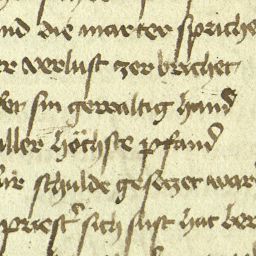 nd die marter spriche
er verlust zerbrichet
sin gewaltig hand
aller höchste pfand
ür schulde gesetzet war
priest sich sust hat ber